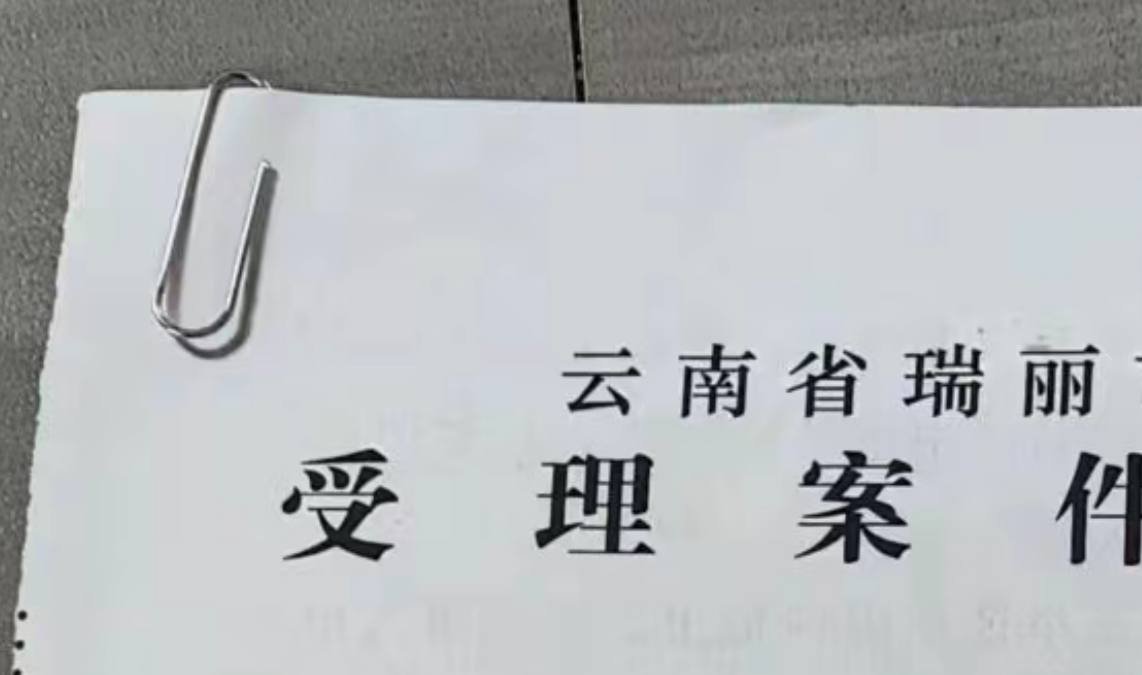 云南省瑞丽
受理案件